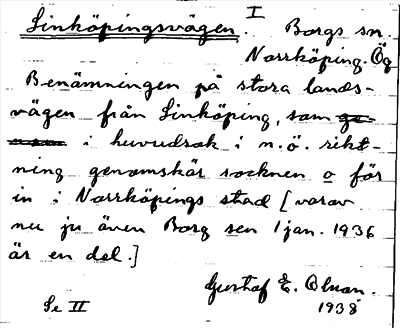 I
Linköpingsvägen. Borgs sn
Norrköping. Ög
Benämningen på stora lands-
vägen från Linköping, som ge-
nom i huvudsak i n.ö. rikt-
ning genomskär socknen o för
in i Norrköpings stad [varav
nu ju även Borg sen 1 jan. 1936
är en del.]
Gustaf E. Olson.
1938
Se II